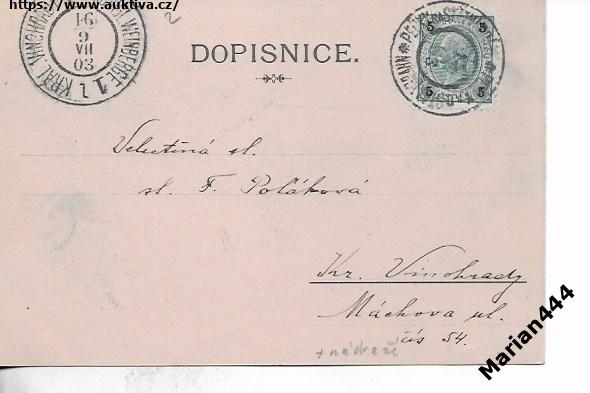 https://www.auktiva.cz/
KRÁL. VINOHRADY
WEINBERGE 1
16
9
VII
03
DOPISNICE.
5 5
5 5
Velectěná sl.
sl. F. Poláková
Kr. Vinohrady
Máchova ul.
čís 54.
+ nádraží
Marian444